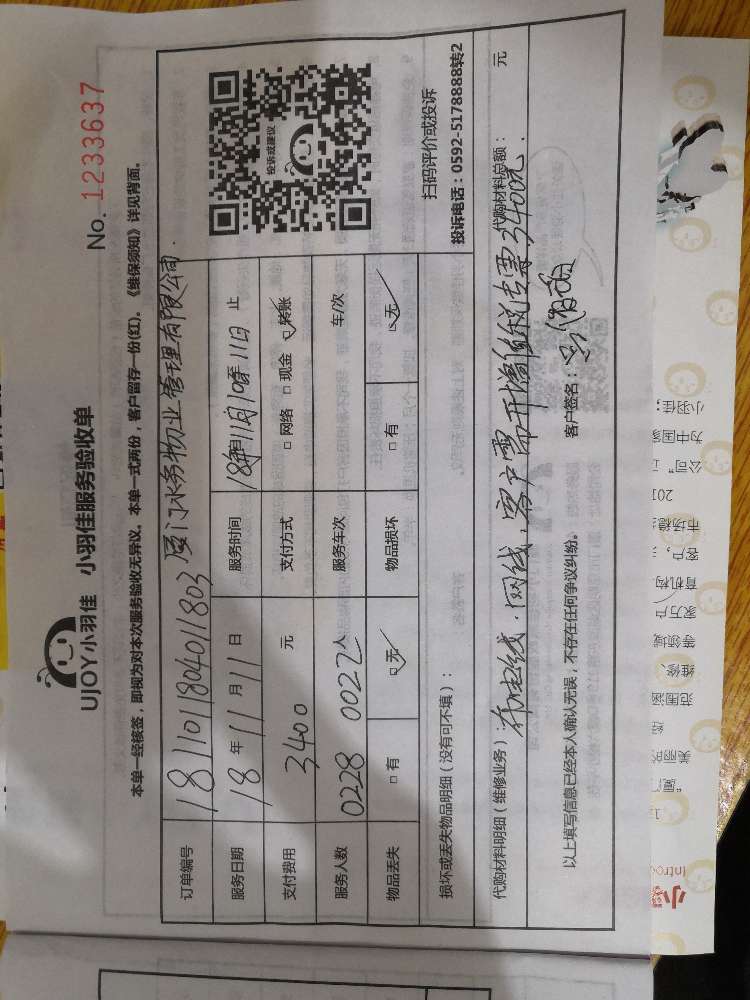 UJOY小羽佳 小羽佳服务验收单
No. 1233637
本单一经核签，即视为对本次服务验收无异议。本单一式两份，客户留存一份(红)。《维保须知》详见背面。
订单编号 1811011804011803 厦门水务物业管理有限公司.
服务日期 18 年 11 月 11 日 服务时间 止
支付费用 3400 元 支付方式 □ 网络 □ 现金 ☑ 转账
服务人数 0228 0022 人 服务车次 车/次
物品丢失 □ 有 ☑ 无 物品损坏 □ 有 ☑ 无
投诉或建议
扫码评价或投诉
投诉电话：0592-5178888转2
损坏或丢失物品明细（没有可不填）：
代购材料明细（维修业务）： 代购材料总额： 元
布电线.网线. 客户需开增值税专票3400元.
以上填写信息已经本人确认无误，不存在任何争议纠纷。 客户签名：
小羽佳:
为中国家
公司"
201
市场稳
客户,
育机构
家万户
等领域
维修、
范围涵
"厦门
Introd
小